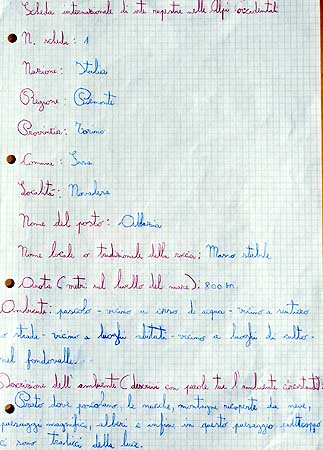 Scheda internazionale di arte rupestre nelle Alpi occidentali
N. scheda: 1
Nazione: Italia
Regione: Piemonte
Provincia: Torino
Comune:
Località: Novalesa
Nome del posto:
Nome locale o tradizionale della roccia: Masso stabile
Quota (metri sul livello del mare): 800 m.
Ambiente: pascolo - vicino a corso di acqua - vicino a sentiero
o strada - vicino a luoghi abitati - vicino a luoghi di culto -
nel fondovalle.
Descrizione dell'ambiente (descrivi con parole tue l'ambiente circostante):
Prato dove pascolano le mucche, montagne ricoperte da neve,
paesaggi magnifici, alberi e infine in questo paesaggio purtroppo
ci sono tralicci della luce.